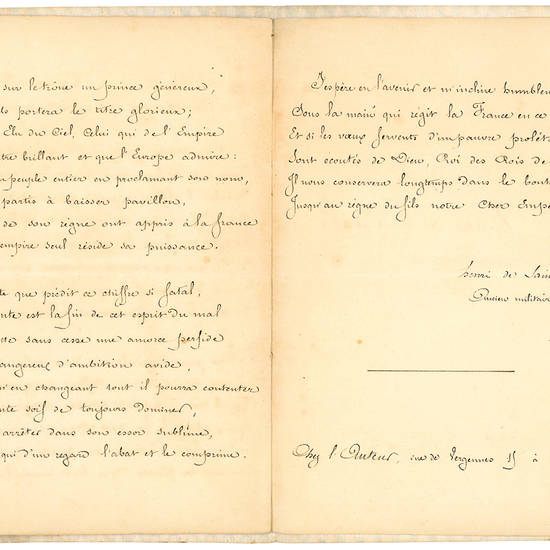 sur le trône un prince généreux,
portera le titre glorieux;
Elu du Ciel, Celui qui de l'Empire
brillant et que l'Europe admire:
peuple entier en proclamant son nom,
partis à baisser pavillon,
de son règne ont appris à la france
empire seul réside sa puissance.
que prédit ce chiffre si fatal,
est la fin de cet esprit du mal
sans cesse une amorce perfide
d'ambition avide,
en changeant tout il pourra contenter
soif de toujours dominer,
arrêter dans son essor sublime,
qui d'un regard l'abat et le comprime.
J'espère en l'avenir et m'incline humblem
Sous la main qui régit la France en ce
Et si les vœux fervents d'un pauvre prolét
Sont écoutés de Dieu, Roi des Rois de
Il nous conservera longtemps dans le bon
Jusqu'au règne du fils notre Cher Empe
henri de Sain
militaire
Chez l'Auteur, rue de Vergennes 15 à